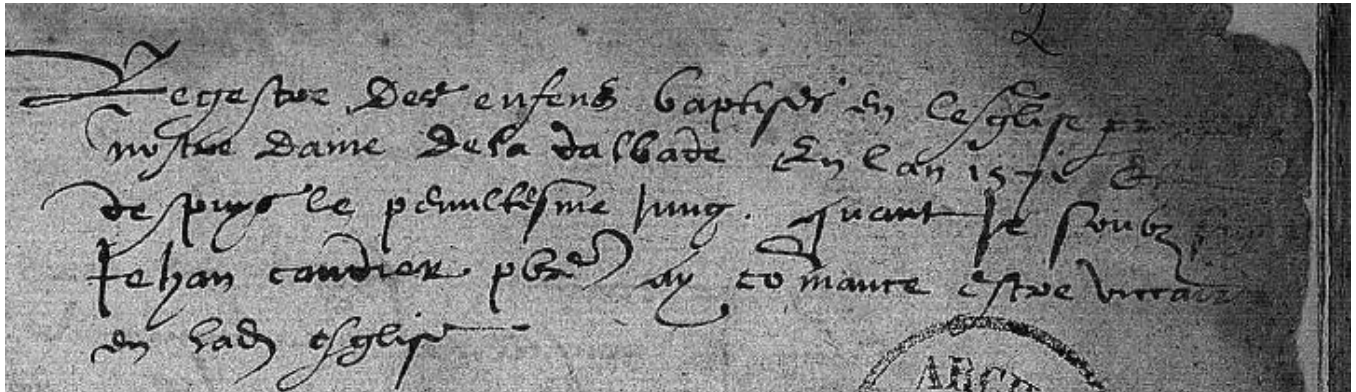 2
Regestre des enfens baptises en lesglise
nostre dame de la dalbade En lan 1571 Et
despuys le penultesme Jung. quant Je soubz
Jehan caudier pbre ay comance estre viccaire
en lad esglise
ARCH